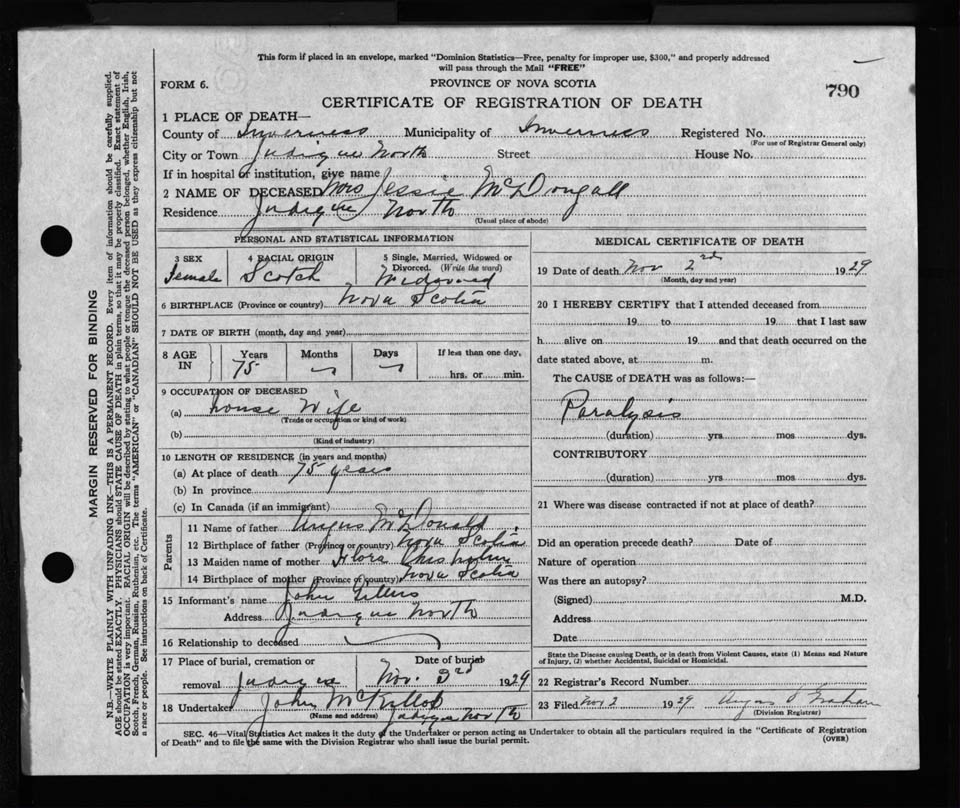 This form if placed in an envelope, marked "Dominion Statistics—Free, penalty for improper use, $300," and properly addressed
will pass through the Mail "FREE"
FORM 6.
PROVINCE OF NOVA SCOTIA
790
CERTIFICATE OF REGISTRATION OF DEATH
1 PLACE OF DEATH—
County of Inverness Municipality of Inverness Registered No.
(For use of Registrar General only)
City or Town Judique North Street House No.
If in hospital or institution, give name
2 NAME OF DECEASED Mrs Jessie McDougall
Residence Judique North
(Usual place of abode)
PERSONAL AND STATISTICAL INFORMATION
3 SEX 4 RACIAL ORIGIN 5 Single, Married, Widowed or
Divorced. (Write the word)
Female Scotch Widowed
6 BIRTHPLACE (Province or country) Nova Scotia
7 DATE OF BIRTH (month, day and year)
8 AGE IN Years Months Days If less than one day,
75 hrs. or min.
9 OCCUPATION OF DECEASED
(a) House Wife
(Trade or occupation or kind of work)
(b)
(Kind of industry)
10 LENGTH OF RESIDENCE (in years and months)
(a) At place of death 75 years
(b) In province
(c) In Canada (if an immigrant)
Parents
11 Name of father Angus McDonald
12 Birthplace of father (Province or country) Nova Scotia
13 Maiden name of mother Flora
14 Birthplace of mother (Province or country) Nova Scotia
15 Informant's name John Gillis
Address Judique North
16 Relationship to deceased
17 Place of burial, cremation or Date of burial
removal Judique Nov. 3rd 1929
18 Undertaker John McKillop
(Name and address) Judique North
MEDICAL CERTIFICATE OF DEATH
19 Date of death Nov 2nd 1929
(Month, day and year)
20 I HEREBY CERTIFY that I attended deceased from
19 to 19 that I last saw
h alive on 19 and that death occurred on the
date stated above, at m.
The CAUSE OF DEATH was as follows:—
Paralysis
(duration) yrs mos dys.
CONTRIBUTORY
(duration) yrs mos dys.
21 Where was disease contracted if not at place of death?
Did an operation precede death? Date of
Nature of operation
Was there an autopsy?
(Signed) M.D.
Address
Date
State the Disease causing Death, or in death from Violent Causes, state (1) Means and Nature
of Injury, (2) whether Accidental, Suicidal or Homicidal.
22 Registrar's Record Number
23 Filed Nov 2 1929 Angus Graham
(Division Registrar)
SEC. 46—Vital Statistics Act makes it the duty of the Undertaker or person acting as Undertaker to obtain all the particulars required in the "Certificate of Registration
of Death" and to file the same with the Division Registrar who shall issue the burial permit.
(OVER)
MARGIN RESERVED FOR BINDING
N.B.—WRITE PLAINLY WITH UNFADING INK—THIS IS A PERMANENT RECORD. Every item of information should be carefully supplied.
AGE should be stated EXACTLY. PHYSICIANS should STATE CAUSE OF DEATH in plain terms, so that it may be properly classified. Exact statement of
OCCUPATION is very important. RACIAL ORIGIN will be described by stating to what people or tongue the deceased person belonged, whether English, Irish,
Scotch, French, German, Russian, Ruthenian, etc. The terms "AMERICAN" or "CANADIAN" SHOULD NOT BE USED as they express citizenship but not
a race or people. See instructions on back of Certificate.